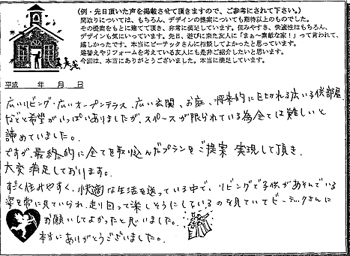 (例・先日頂いた声を掲載させて頂きますので、ご参考にされて下さい。)
間取りについては、もちろん、デザインの提案についても期待以上のものでした。
その提案をもとに建てて頂き、非常に満足しています。住みやすさ、快適性はもちろん、
デザインも気にいっています。先日、遊びに来た友人に「まぁ～素敵な家!」って言われて、
嬉しかったです。本当にピーテックさんに相談してよかったと思っています。
建替えやリフォームを考えている友人にも是非ご紹介したいと思います。
今回は、本当にありがとうございました。本当に満足しています。
平成 年 月 日
広いリビング・広いオープンテラス・広い玄関、お庭、将来的に仕切れる広い子供部屋
などと希望がいっぱいありましたが、スペースが限られている為全ては難しいと
諦めていました。
ですが、最終的に全てを取り込んだプランをご提案 実現して頂き、
大変満足しております。
すごく住みやすく、快適な生活を送っている中で、リビングで子供があそんでいる
姿を常に見ていられ、走り回って楽しそうにしているのを見ていてピーテックさんに
お願いしてよかったと思いました。
本当にありがとうございました。